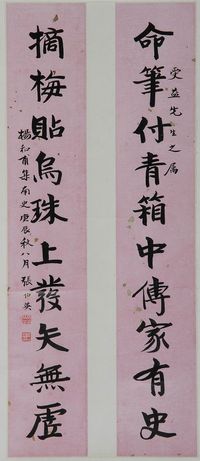 受益先生之属
命筆付青箱中傳家有史
摘梅貼烏珠上發矢無虛
楊和甫集南史庚辰秋八月張伯英